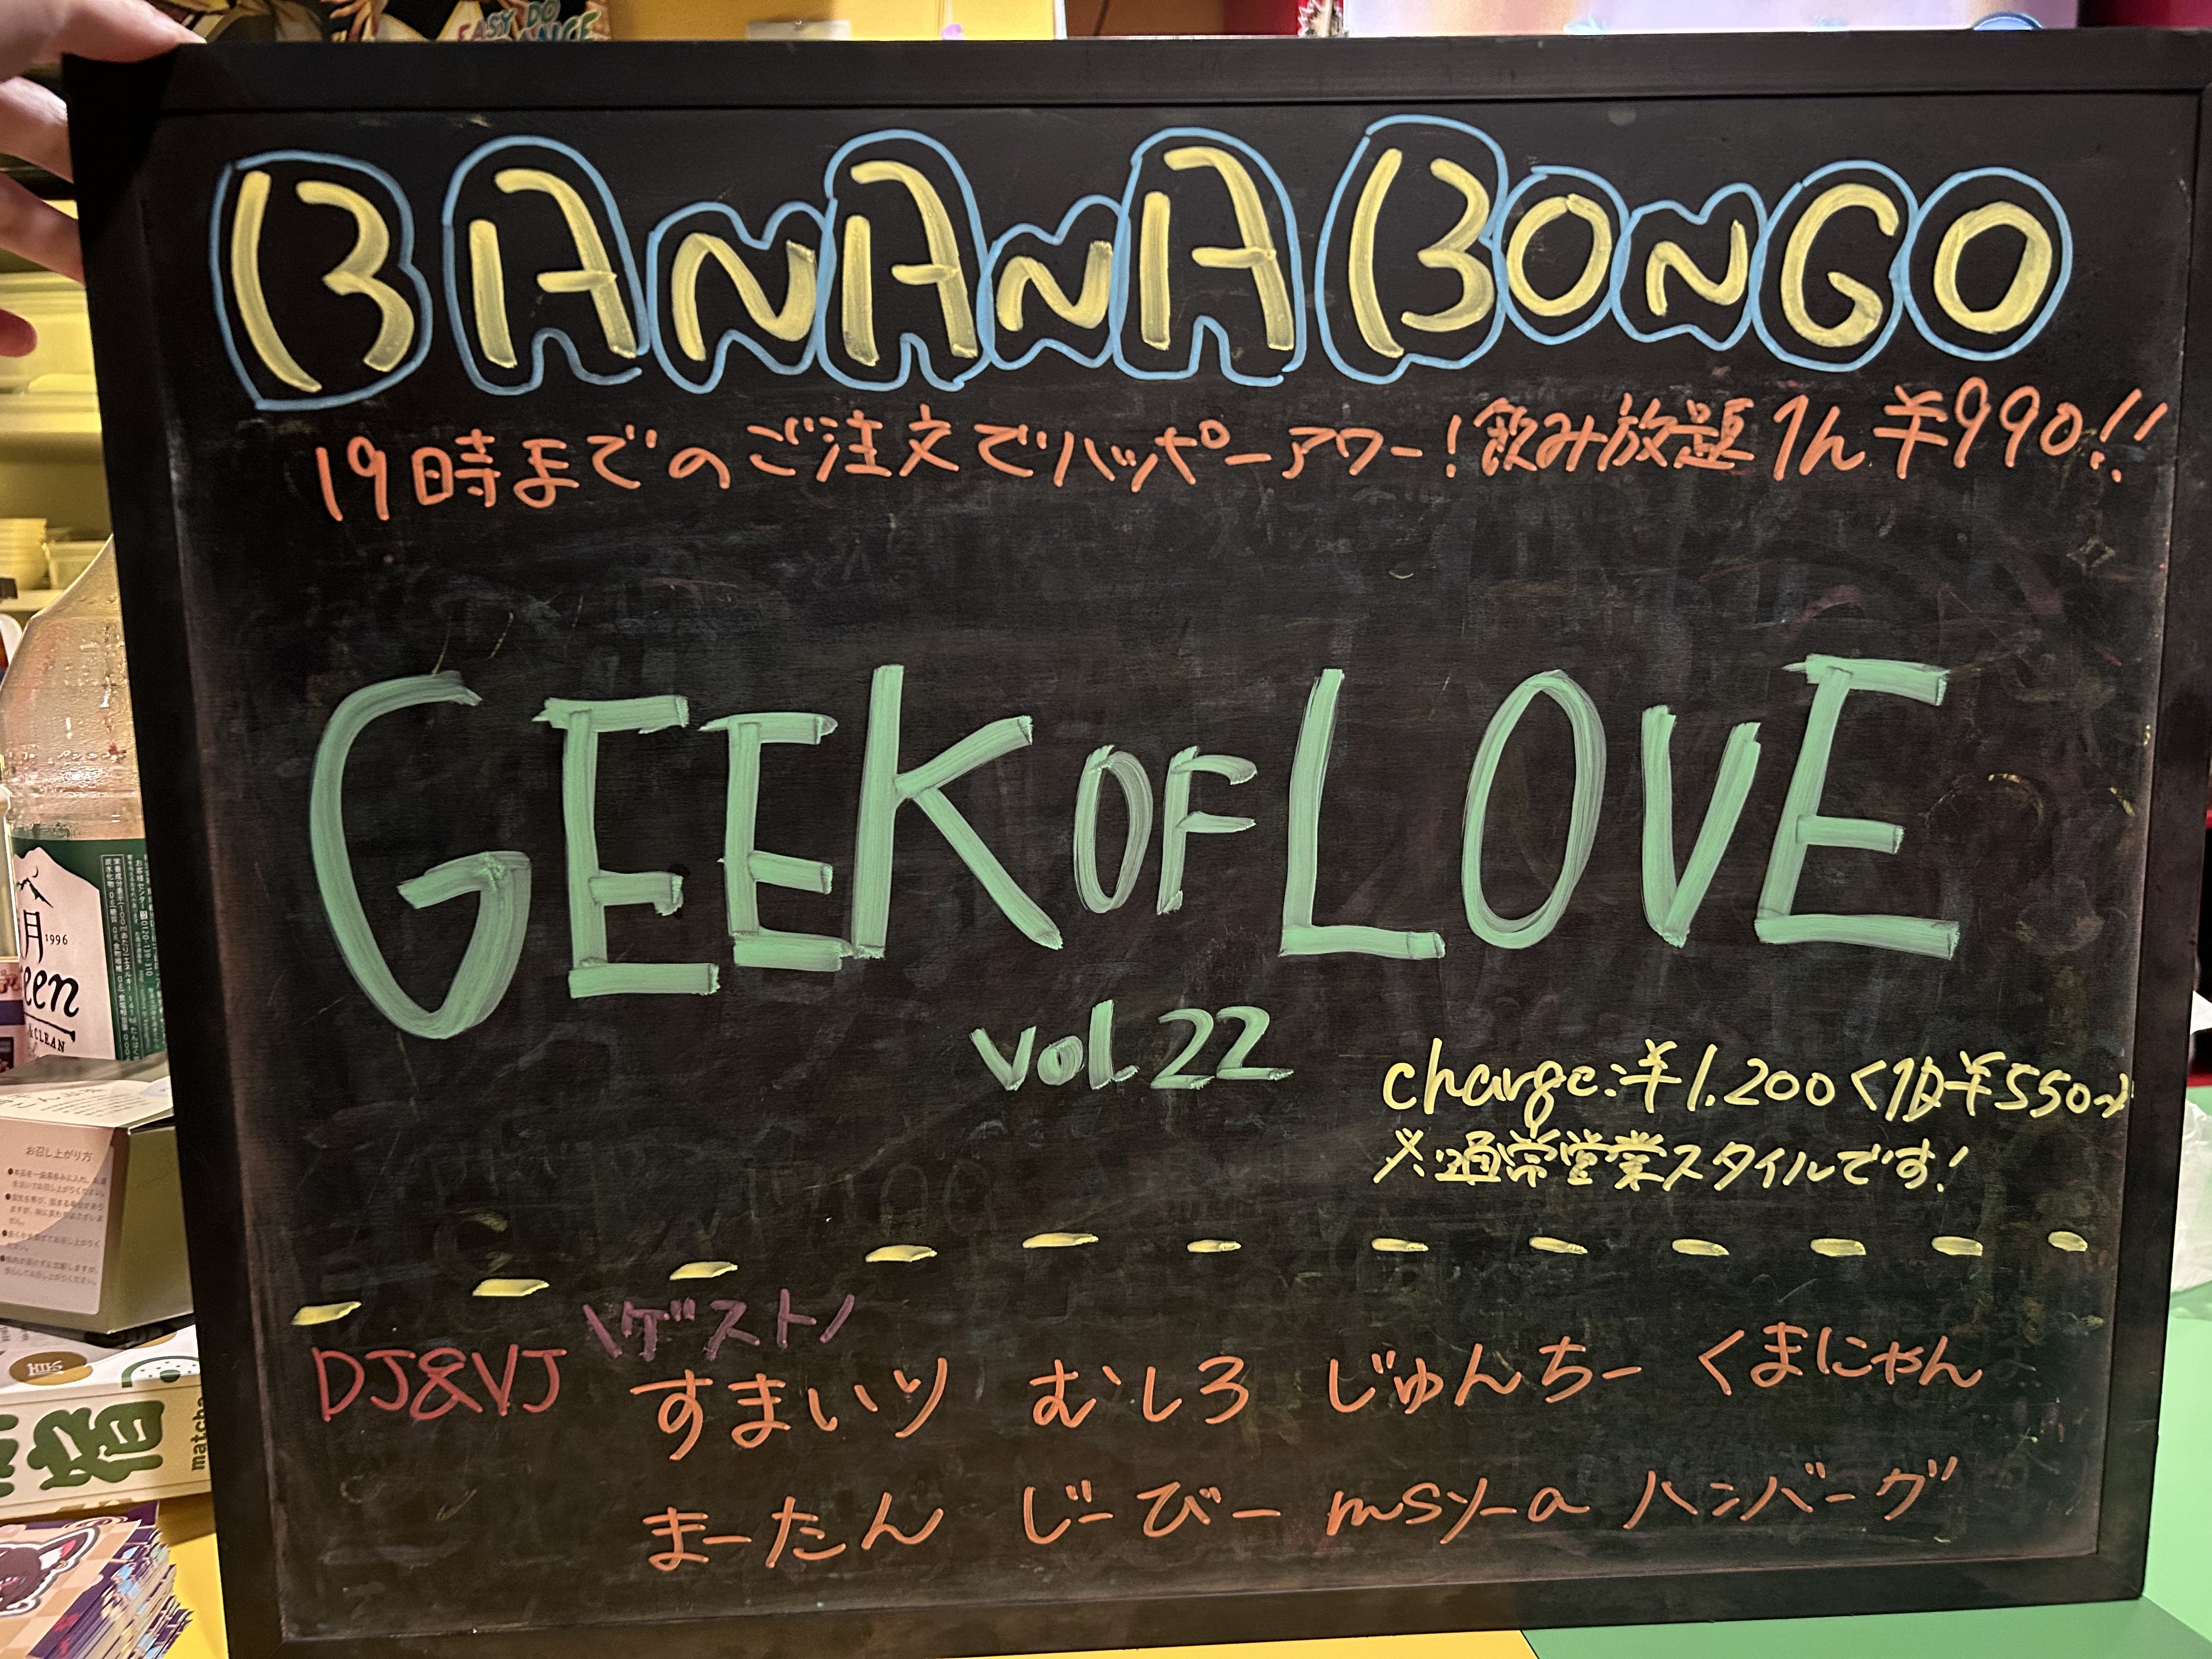 EASY DO
BANANA BONGO
19時までのご注文でハッピーアワー!飲み放題1h ¥990!!
GEEK OF LOVE
vol.22
charge:¥1.200<1D¥550~>
※通常営業スタイルです!
\ゲスト/
DJ&VJ
すまいり むしろ じゅんちー くまにゃん
まーたん じーびー msy-a ハンバーグ
月 1996
een
& CLEAN
お召し上がり方
matcha